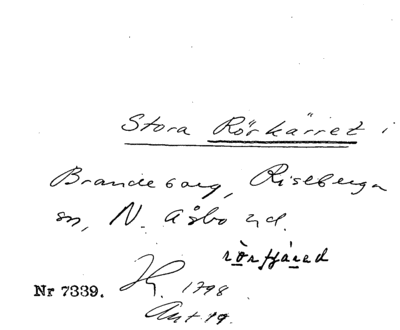 Stora Rörkärret i
Brandeborg, Riseberga
sn, N. Åsbo hd.
rörfjäred
Nr 7339. 1798
Akt 19.